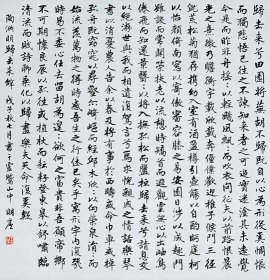 歸去來兮田園將蕪胡不歸既自以心為形役奚惆悵
而獨悲悟已往之不諫知來者之可追實迷途其未遠覺
今是而昨非舟遙遙以輕颺風飄飄而吹衣問征夫以前路恨晨
光之熹微乃瞻衡宇載欣載奔僮僕歡迎稚子候門三徑
就荒松菊猶存攜幼入室有酒盈樽引壺觴以自酌眄庭柯
以怡顏倚南窗以寄傲審容膝之易安園日涉以成趣門
雖設而常關策扶老以流憩時矯首而遐觀雲無心以出岫鳥
倦飛而知還景翳翳以將入撫孤松而盤桓歸去來兮請息交
以絕游世與我而相遺復駕言兮焉求悅親戚之情話樂琴
書以消憂農人告余以春及將有事於西疇或命巾車或棹
孤舟既窈窕以尋壑亦崎嶇而經丘木欣欣以向榮泉涓涓而
始流羨萬物之得時感吾生之行休已矣乎寓形宇內復幾
時曷不委心任去留胡為遑遑欲何之富貴非吾願帝鄉
不可期懷良辰以孤往或植杖而耘耔登東皋以舒嘯臨
清流而賦詩聊乘化以歸盡樂夫天命復奚疑
陶淵明歸去來辭 戊午秋月書于山中